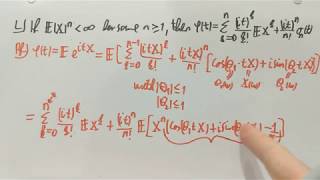 4) If E|X|^n < ∞ for some n ≥ 1, then φ(t) = ∑_{k=0}^{n} (it)^k/k! E X^k + (it)^n/n! ε_n(t)
Pf) φ(t) = E e^{itX} = E[ ∑_{k=0}^{n-1} (itX)^k/k! + (itX)^n/n! (cos θ_1 tX + i sin θ_2 tX) ]
with |θ_1| ≤ 1 θ_1(ω) X(ω) θ_2(ω) X(ω)
|θ_2| ≤ 1
= ∑_{k=0}^{n} (it)^k/k! E X^k + (it)^n/n! E[ X^n (cos θ_1 tX + i sin θ_2 tX - 1) ]